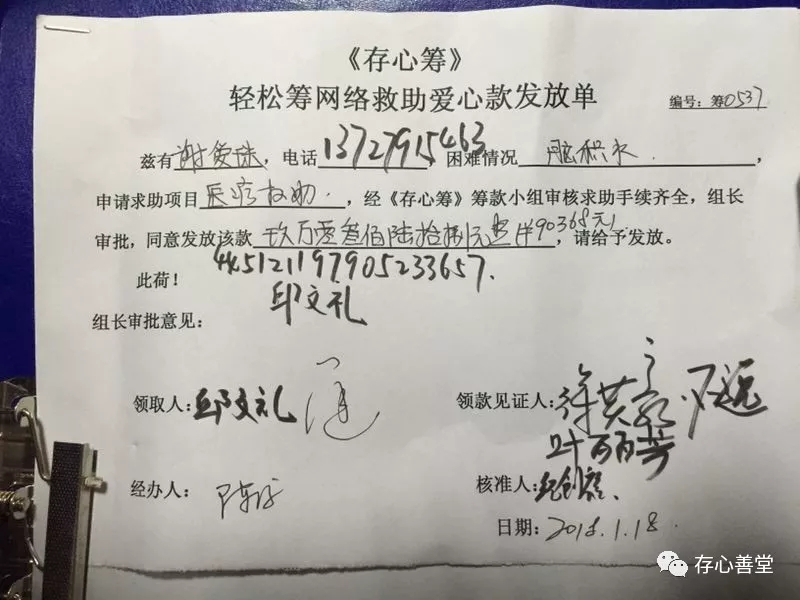 《存心筹》
轻松筹网络救助爱心款发放单
编号:筹0537
兹有谢爱珠,电话13727915463困难情况脑积水.,
申请求助项目医疗救助.,经《存心筹》筹款小组审核求助手续齐全,组长
审批,同意发放该款玖万零叁佰陆拾捌元整(¥90368元),请给予发放。
此荷!445121197905233657.
邱文礼
组长审批意见:
领取人:邱文礼
领款见证人:
叶丽芳
经办人:
核准人:
日期:2018.1.18.
存心善堂